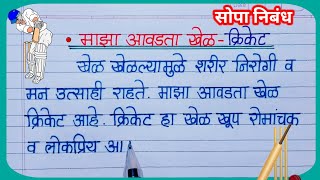 सोपा निबंध
• माझा आवडता खेळ-क्रिकेट
खेळ खेळल्यामुळे शरीर निरोगी व
मन उत्साही राहते. माझा आवडता खेळ
क्रिकेट आहे. क्रिकेट हा खेळ खूप रोमांचक
व लोकप्रिय आ